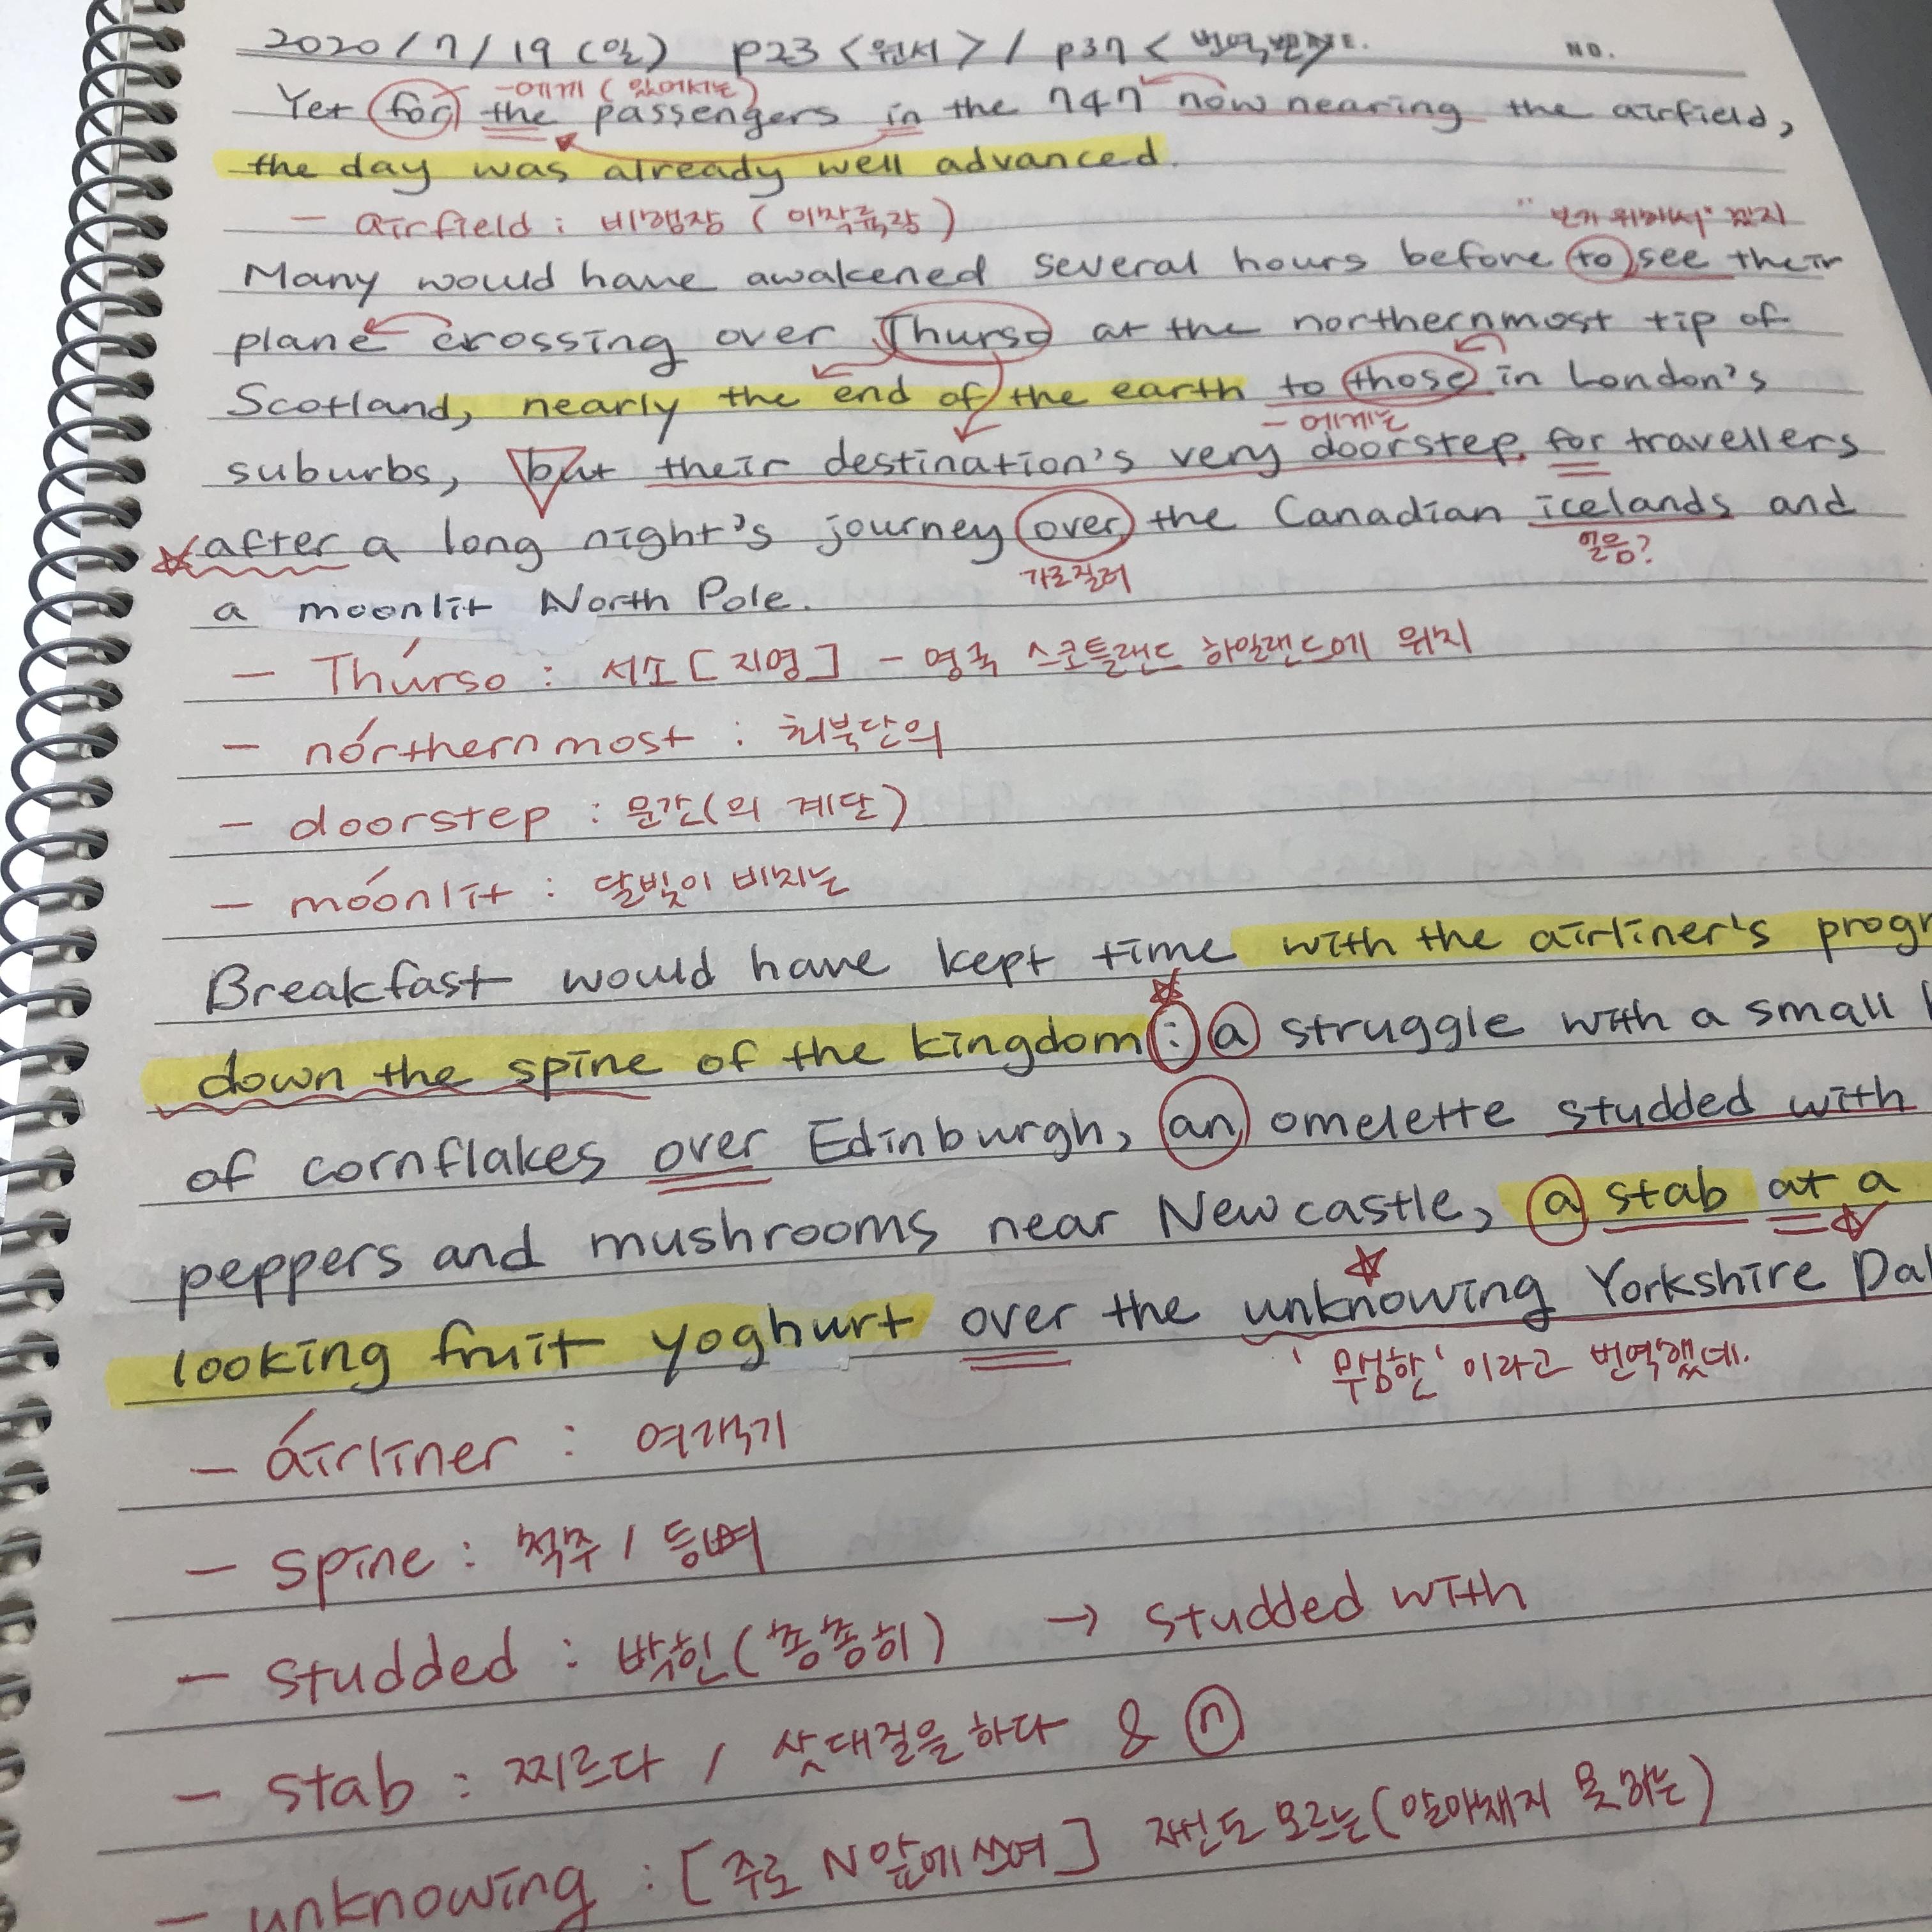 2020/7/19 (일) p23 <원서> / p37 < 번역본>
NO.
-에게 (있어서는)
Yet for the passengers in the 747 now nearing the airfield,
the day was already well advanced.
- airfield : 비행장 (이착륙장)
"보기 위해서"
Many would have awakened several hours before to see their
plane crossing over Thurso at the northernmost tip of
Scotland, nearly the end of the earth to those in London's
-에게는
suburbs, but their destination's very doorstep for travellers
after a long night's journey over the Canadian icelands and
가로질러 얼음?
a moonlit North Pole.
- Thúrso : 서소 [지명] - 영국 스코틀랜드 하일랜드에 위치
- nórthernmost : 최북단의
- doorstep : 문간(의 계단)
- móonlit : 달빛이 비치는
Breakfast would have kept time with the airliner's progr
down the spine of the kingdom : a struggle with a small
of cornflakes over Edinburgh, an omelette studded with
peppers and mushrooms near Newcastle, a stab at a
looking fruit yoghurt over the unknowing Yorkshire Dal
'무심한' 이라고 번역했네.
- áirliner : 여객기
- spine : 척추 / 등뼈
- studded : 박힌(총총히) → studded with
- stab : 찌르다 / 삿대질을 하다 & n
- unknowing : [주로 N앞에 쓰여] 자신도 모르는(알아채지 못하는)